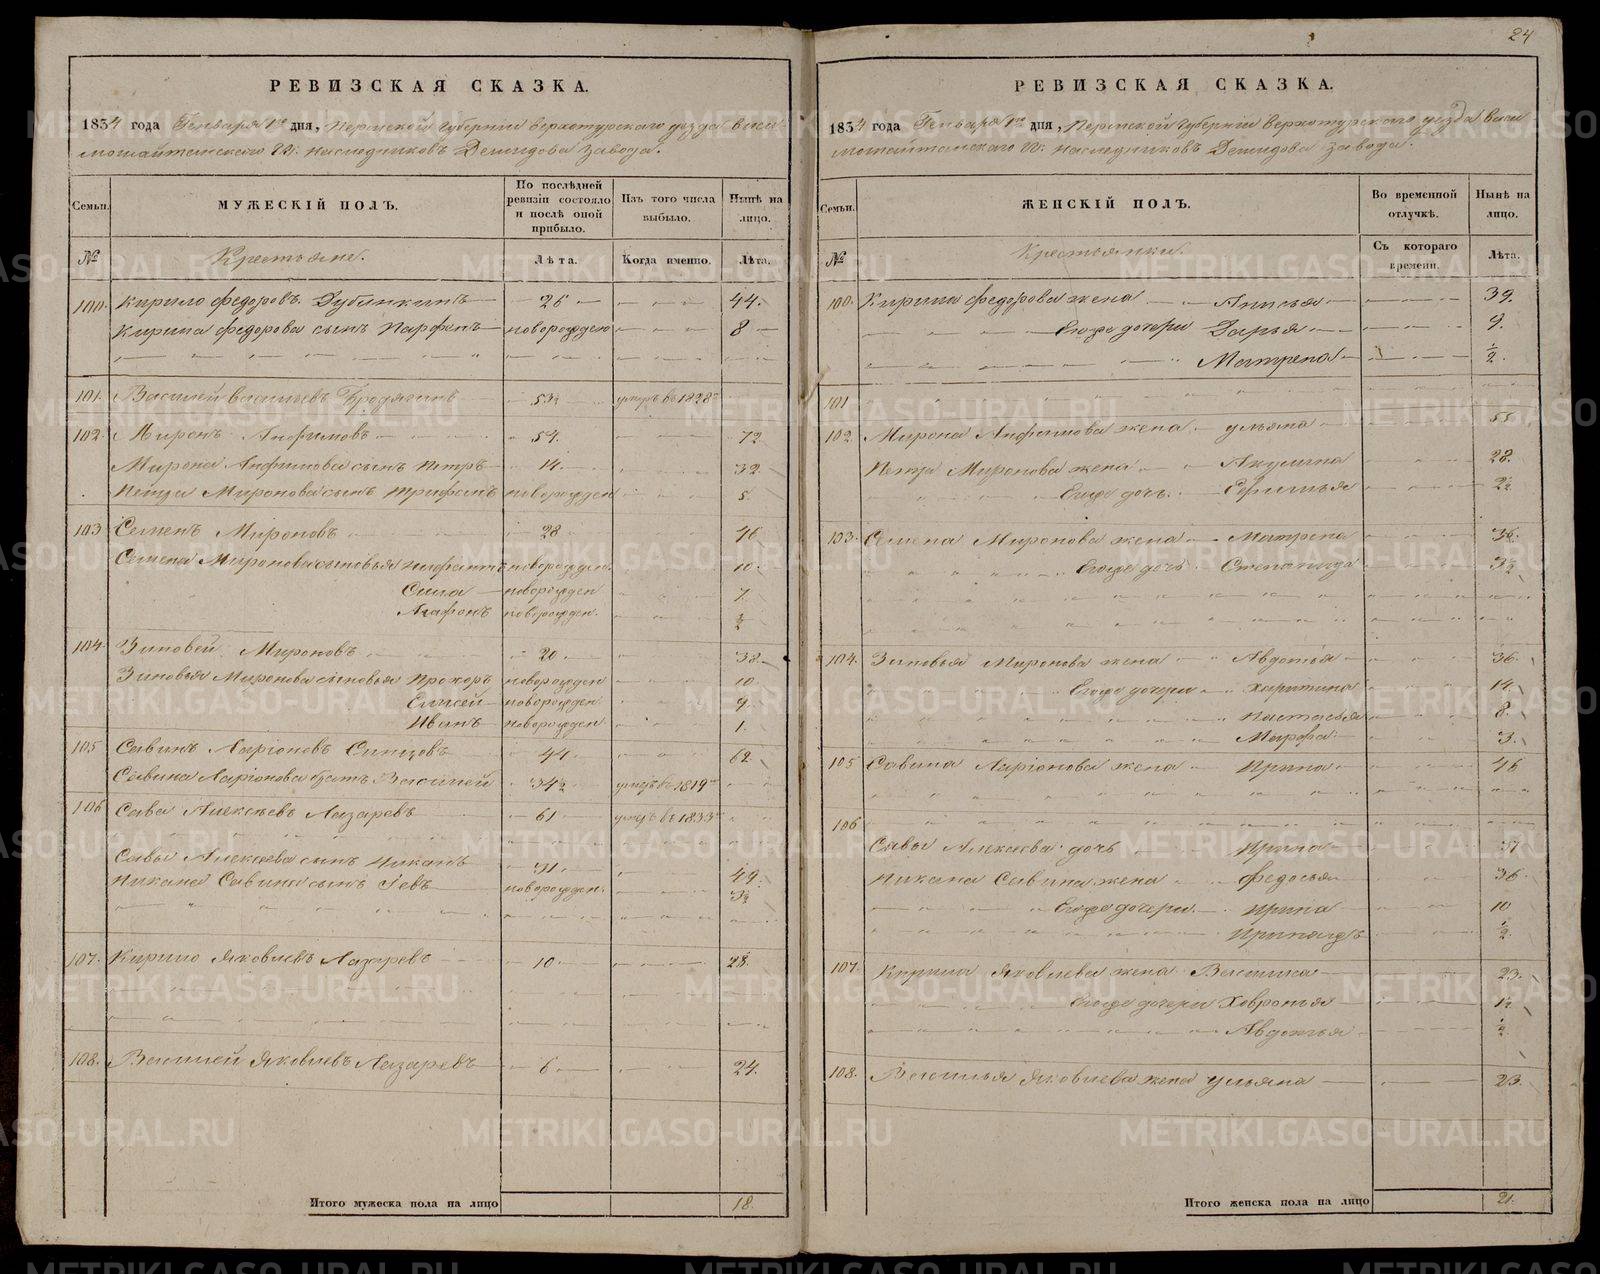 24
РЕВИЗСКАЯ СКАЗКА.
1834 года Генваря 1го дня, Пермской Губернии Верхотурскаго уезда Виси
мошайтанскаго Гг. Наследниковъ Демидова завода.
Семьи. МУЖЕСКІЙ ПОЛЪ. По послѣдней ревизіи состояло и послѣ оной прибыло. Изъ того числа выбыло. Нынѣ на лицо.
№ Крестьяне. Лѣта. Когда именно. Лѣта.
100. Кирило Федоровъ Зубинкинъ 26 44.
Кирила Федорова сынъ Парфенъ новорожден 8
101. Василей Васильевъ Бродягинъ 53½ умеръ въ 1828
102. Миронъ Анфимовъ 54. 72
Мирона Анфимова сынъ Петръ 14. 32.
Петра Миронова сынъ Трифанъ новорожден 5.
103 Семенъ Мироновъ 28 46
Семена Миронова сыновья новорожден. 10.
Сила новорожден 7.
Агафонъ новорожден. ½
104. Зиновей Мироновъ 20 38.
Зиновья Миронова сыновья Прохоръ новорожден 10.
Елисей новорожден. 4
Иванъ новорожден. 1.
105 Савинъ Ларіоновъ 44. 62.
Савина Ларіонова братъ Василей 34½ умеръ въ 1819
106 Сава Алексѣевъ Лазаревъ 61 умеръ въ 1833
Савы Алексеева сынъ Никанъ 31. 49.
Никана Савина сынъ новорожден. 3½
107. Кирило Яковлевъ Лазаревъ 10. 28.
108. Василей Яковлевъ Лазаревъ 6 24.
Итого мужеска пола на лицо 18.
РЕВИЗСКАЯ СКАЗКА.
1834 года Генваря 1го дня, Пермской Губернии Верхотурскаго уезда Виси
мошайтанскаго Гг. Наследниковъ Демидова завода.
Семьи. ЖЕНСКІЙ ПОЛЪ. Во временной отлучкѣ. Нынѣ на лицо.
№ Крестьянки. Съ котораго времени. Лѣта.
100. Кирила Федорова жена Анисья 39.
Егоже дочери Дарья 9.
Матрена ½.
101
102 Мирона Анфимова жена Ульяна 55
Петра Миронова жена Акулина 28.
Егоже дочь 2½
103. Семена Миронова жена Матрена 36.
Егоже дочь Степанида 3½
104. Зиновья Миронова жена Авдотья 36.
Егоже дочери Харитина 14.
Настасья 8.
Марфа 3.
105 Савина Ларіонова жена Ирина 46
106
Савы Алексеева дочь Ирина 37
Никана Савина жена Федосья 36.
Егоже дочери Ирина 10
½.
107. Кирила Яковлева жена Василиса 23.
Егоже дочери Ховронья 1½
Авдотья ½
108. Василья Яковлева жена Ульяна 23.
Итого женска пола на лицо 21.
METRIKI.GASO-URAL.RU